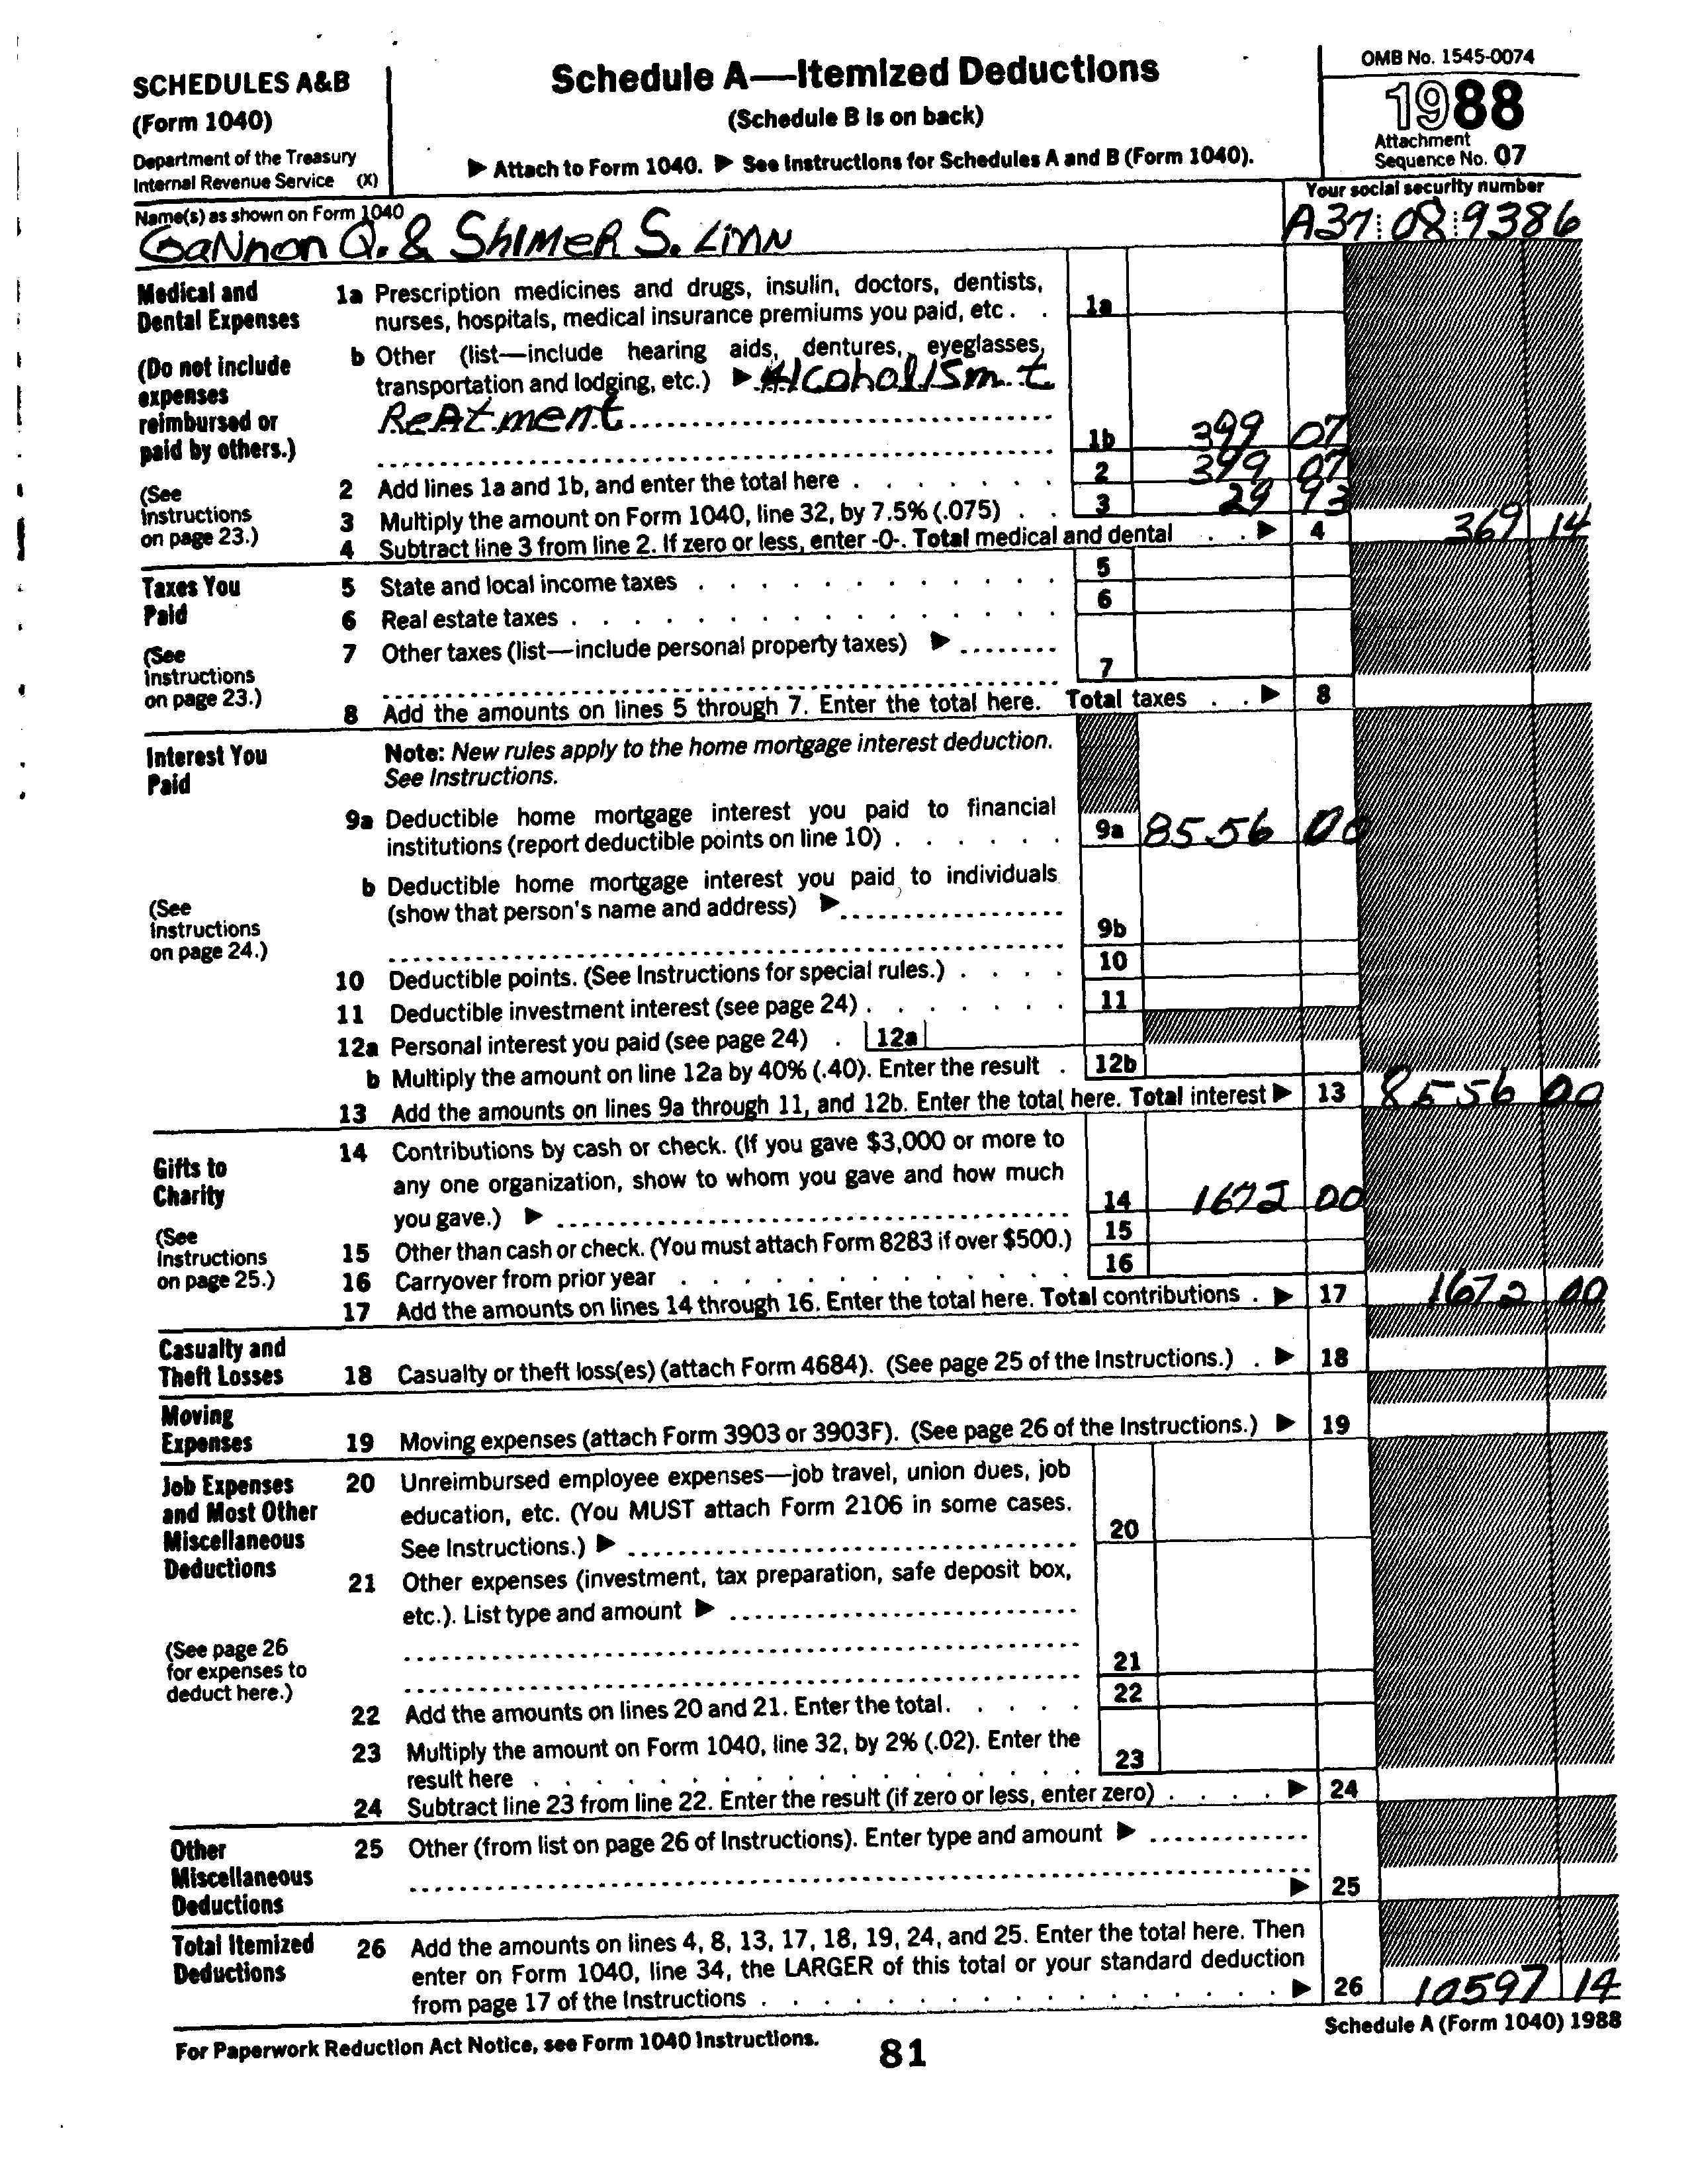 SCHEDULES A&B
(Form 1040)
Department of the Treasury
Internal Revenue Service (X)
Schedule A—Itemized Deductions
(Schedule B is on back)
▶ Attach to Form 1040. ▶ See Instructions for Schedules A and B (Form 1040).
OMB No. 1545-0074
1988
Attachment
Sequence No. 07
Name(s) as shown on Form 1040
GaNnon Q. & SHIMER S. LINN
Your social security number
A37 08 9386
Medical and
Dental Expenses
(Do not include
expenses
reimbursed or
paid by others.)
(See
Instructions
on page 23.)
1a Prescription medicines and drugs, insulin, doctors, dentists,
nurses, hospitals, medical insurance premiums you paid, etc . . 1a
b Other (list—include hearing aids, dentures, eyeglasses,
transportation and lodging, etc.) ▶ Alcohalism t
ReAtment
1b 399 07
2 Add lines 1a and 1b, and enter the total here . . . . . . . 2 399 07
3 Multiply the amount on Form 1040, line 32, by 7.5% (.075) . . 3 29 93
4 Subtract line 3 from line 2. If zero or less, enter -0-. Total medical and dental . . ▶ 4 369 14
Taxes You
Paid
(See
Instructions
on page 23.)
5 State and local income taxes . . . . . . . . . . . 5
6 Real estate taxes . . . . . . . . . . . . . . . 6
7 Other taxes (list—include personal property taxes) ▶
7
8 Add the amounts on lines 5 through 7. Enter the total here. Total taxes . . ▶ 8
Interest You
Paid
(See
Instructions
on page 24.)
Note: New rules apply to the home mortgage interest deduction.
See Instructions.
9a Deductible home mortgage interest you paid to financial
institutions (report deductible points on line 10) . . . . . . 9a 8556 00
b Deductible home mortgage interest you paid to individuals
(show that person's name and address) ▶
9b
10 Deductible points. (See Instructions for special rules.) . . . . 10
11 Deductible investment interest (see page 24) . . . . . . . 11
12a Personal interest you paid (see page 24) . 12a
b Multiply the amount on line 12a by 40% (.40). Enter the result . 12b
13 Add the amounts on lines 9a through 11, and 12b. Enter the total here. Total interest ▶ 13 8556 00
Gifts to
Charity
(See
Instructions
on page 25.)
14 Contributions by cash or check. (If you gave $3,000 or more to
any one organization, show to whom you gave and how much
you gave.) ▶ 14 1672 00
15 Other than cash or check. (You must attach Form 8283 if over $500.) 15
16 Carryover from prior year . . . . . . . . . . . . 16
17 Add the amounts on lines 14 through 16. Enter the total here. Total contributions . ▶ 17 1672 00
Casualty and
Theft Losses
18 Casualty or theft loss(es) (attach Form 4684). (See page 25 of the Instructions.) . ▶ 18
Moving
Expenses
19 Moving expenses (attach Form 3903 or 3903F). (See page 26 of the Instructions.) ▶ 19
Job Expenses
and Most Other
Miscellaneous
Deductions
(See page 26
for expenses to
deduct here.)
20 Unreimbursed employee expenses—job travel, union dues, job
education, etc. (You MUST attach Form 2106 in some cases.
See Instructions.) ▶ 20
21 Other expenses (investment, tax preparation, safe deposit box,
etc.). List type and amount ▶
21
22 Add the amounts on lines 20 and 21. Enter the total. . . . . 22
23 Multiply the amount on Form 1040, line 32, by 2% (.02). Enter the
result here . . . . . . . . . . . . . . . . . 23
24 Subtract line 23 from line 22. Enter the result (if zero or less, enter zero) . . . . ▶ 24
Other
Miscellaneous
Deductions
25 Other (from list on page 26 of Instructions). Enter type and amount ▶
▶ 25
Total Itemized
Deductions
26 Add the amounts on lines 4, 8, 13, 17, 18, 19, 24, and 25. Enter the total here. Then
enter on Form 1040, line 34, the LARGER of this total or your standard deduction
from page 17 of the Instructions . . . . . . . . . . . . . . . . ▶ 26 10597 14
For Paperwork Reduction Act Notice, see Form 1040 Instructions.
81
Schedule A (Form 1040) 1988